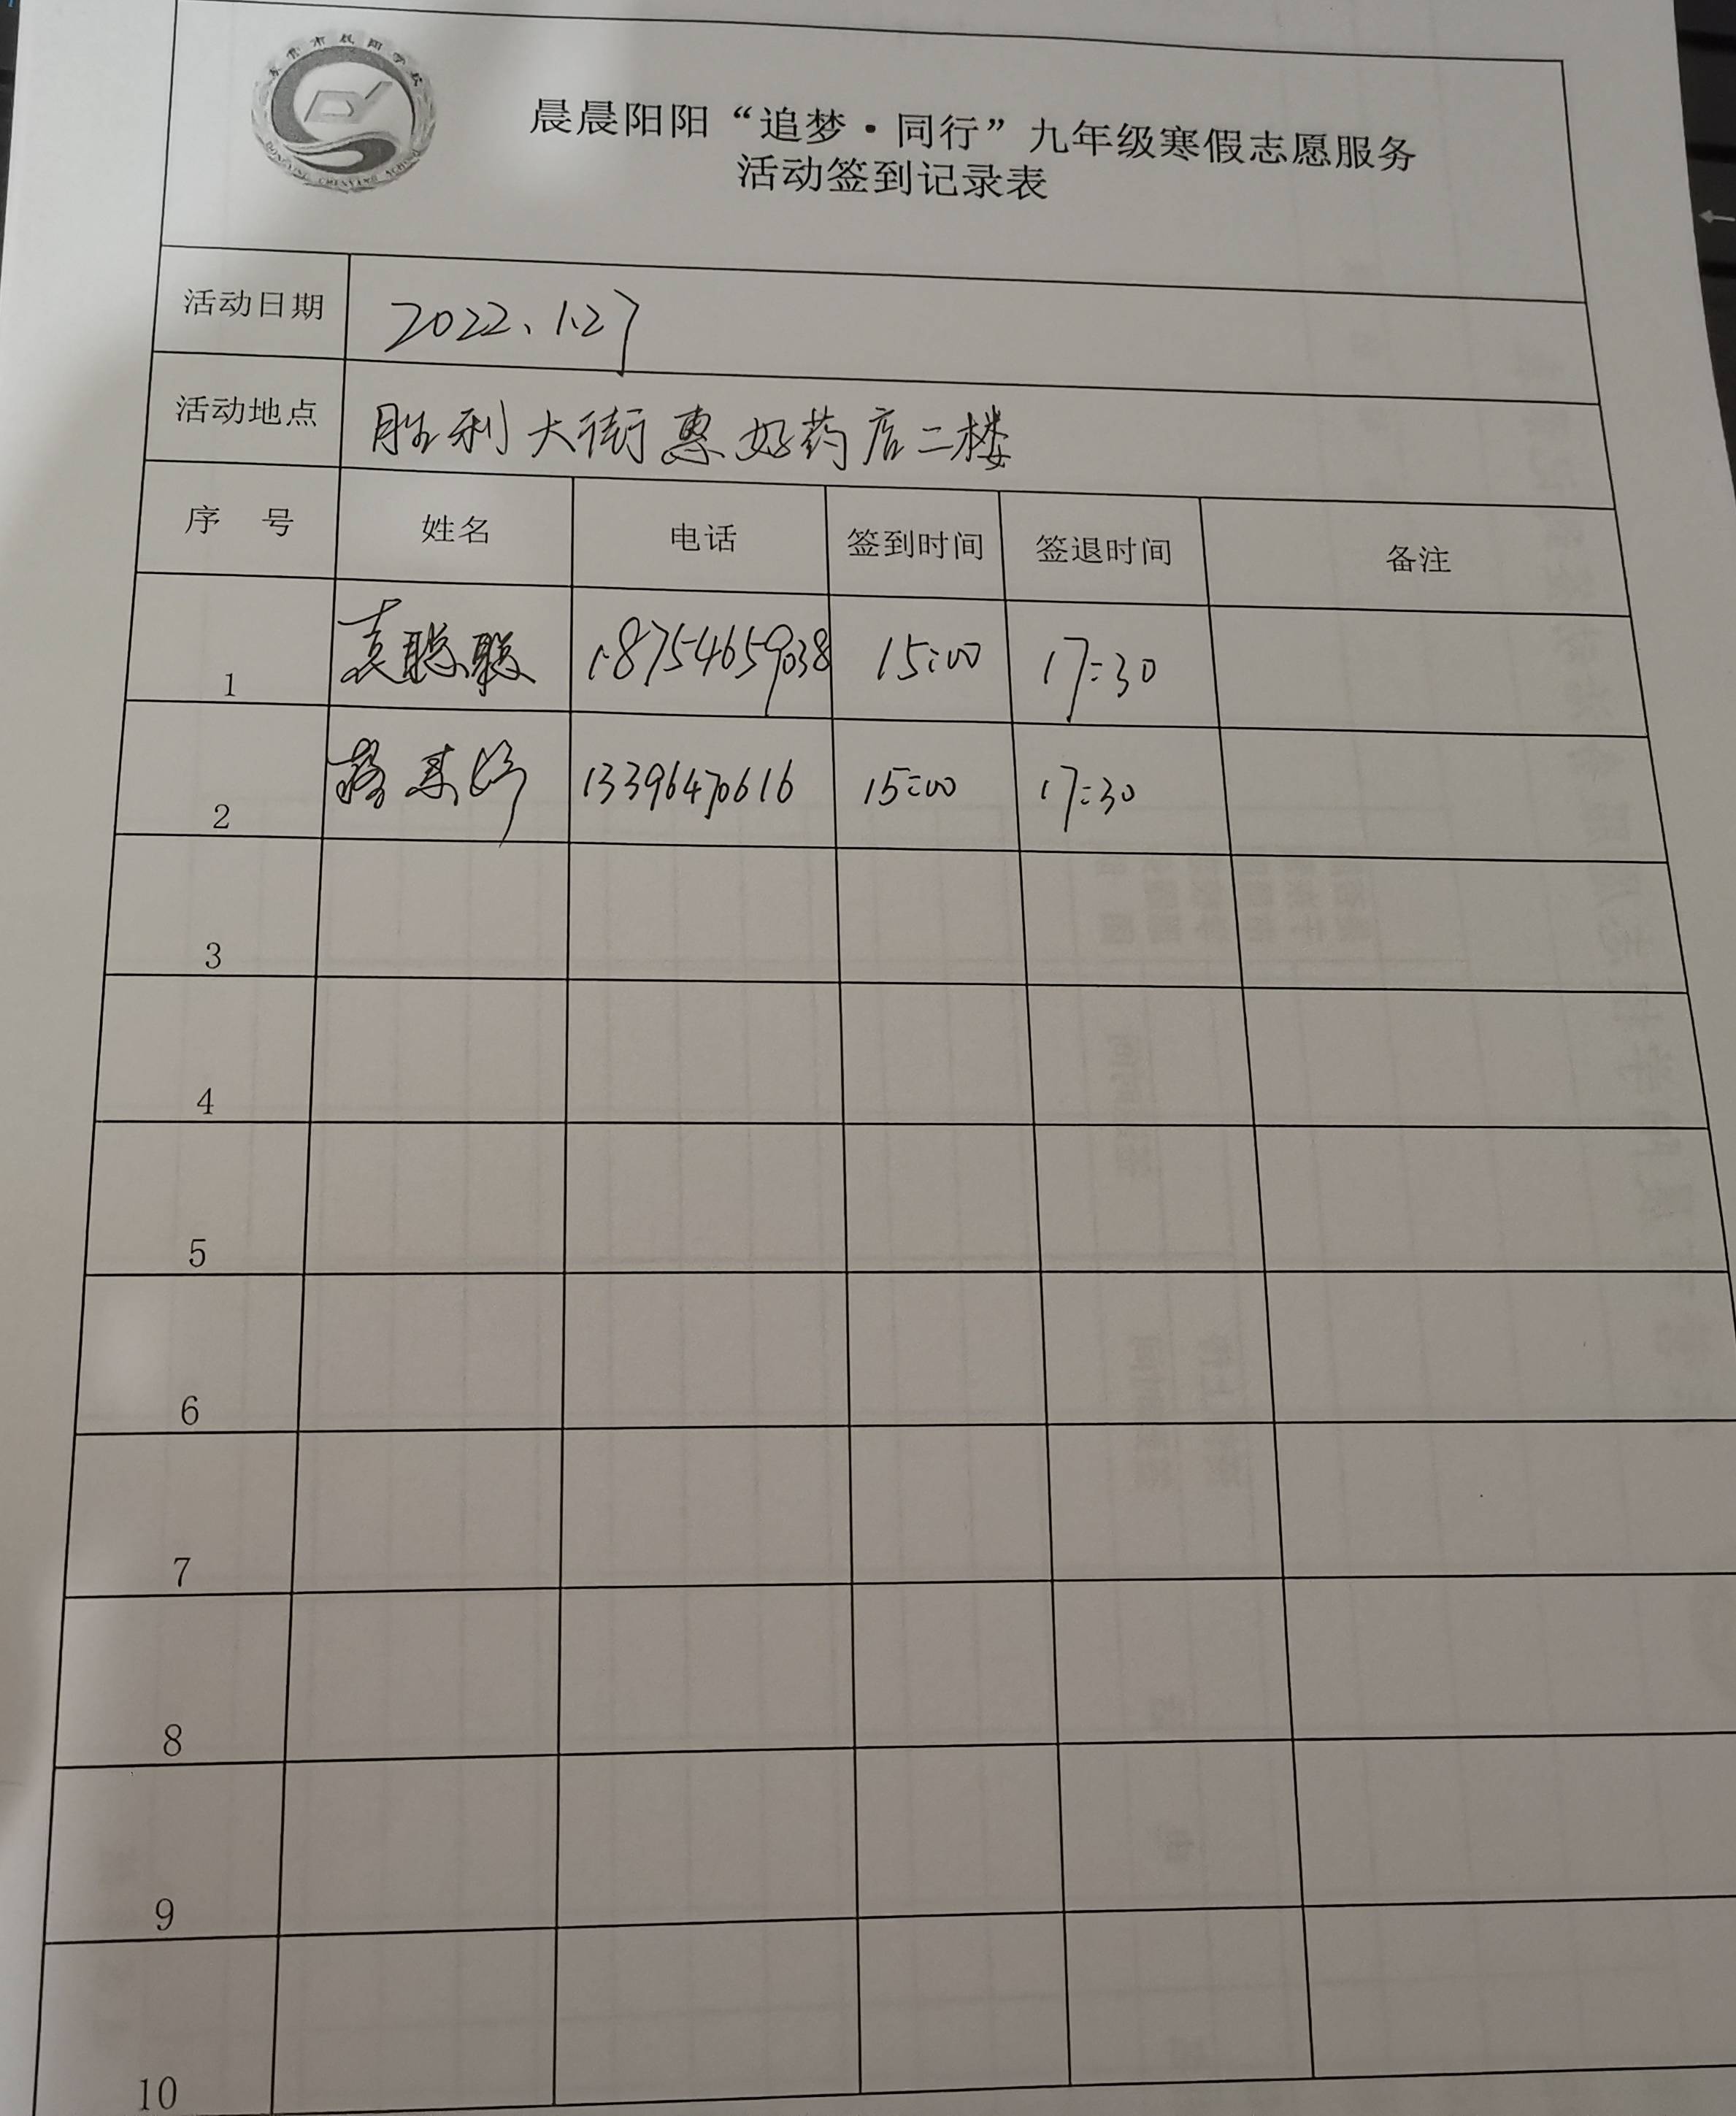 东营市晨阳学校
DONGYING CHENYANG SCHOOL
晨晨阳阳“追梦·同行”九年级寒假志愿服务
活动签到记录表
活动日期 2022、1.27
活动地点 胜利大街惠好药店二楼
序 号 姓名 电话 签到时间 签退时间 备注
1 袁聪聪 18754659038 15:00 17:30
2 13396470616 15:00 17:30
3
4
5
6
7
8
9
10